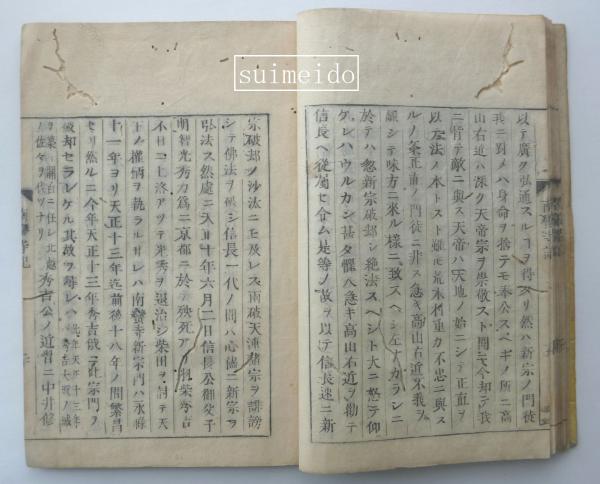 suimeido
以テ廣ク弘通スルコヲ得タリ然ハ新宗ノ門徒
共ニ對メハ身命ヲ捨テモ奉公スベキノ所ニ高
山右近ハ深ク天帝宗ヲ崇敬スト聞モ今却テ我
ニ背テ敵ニ與ス天帝ハ天地ノ始ニシテ正直ヲ
以テ法ノ本トスト雖モ荒木村重カ不忠ニ與ス
ルノ条正直ノ門徒ニ非ス急キ高山右近不我ヲ
飜シテ味方ニ来ル様ニ致スヘシ左ナカラシニ
於テハ忽新宗破却シ絶法スヘシト大ニ怒テ仰
ケレハウルカン甚タ懼ハ急キ高山右近ヲ勧テ
信長ヘ従属セ令ム是等ノ故ヲ以テ信長速ニ新
宗破却ノ沙汰ニモ及レス而破天連諸宗ヲ誹謗
シテ佛法ヲ破シ信長一代ノ間ハ心儘ニ新宗ヲ
弘法ス然處ニ天正十年六月二日信長公御父子
明智光秀カ爲ニ京都ニ於テ殃死アリ羽柴秀吉
不日ニ上洛アツテ光秀ヲ退治シ柴田ヲ討テ天
下ノ權柄ヲ執ラルサレハ南蠻寺新宗門ハ永禄
十一年ヨリ天正十三年迄前後十八年ノ間繁昌
セリ然ルニ今年天正十三年秀吉俄ニ此宗門ヲ
破却セラレケル其故ヲ尋レハ
ヲ築 關白ニ任シ此處秀吉公ノ近習ニ中井修